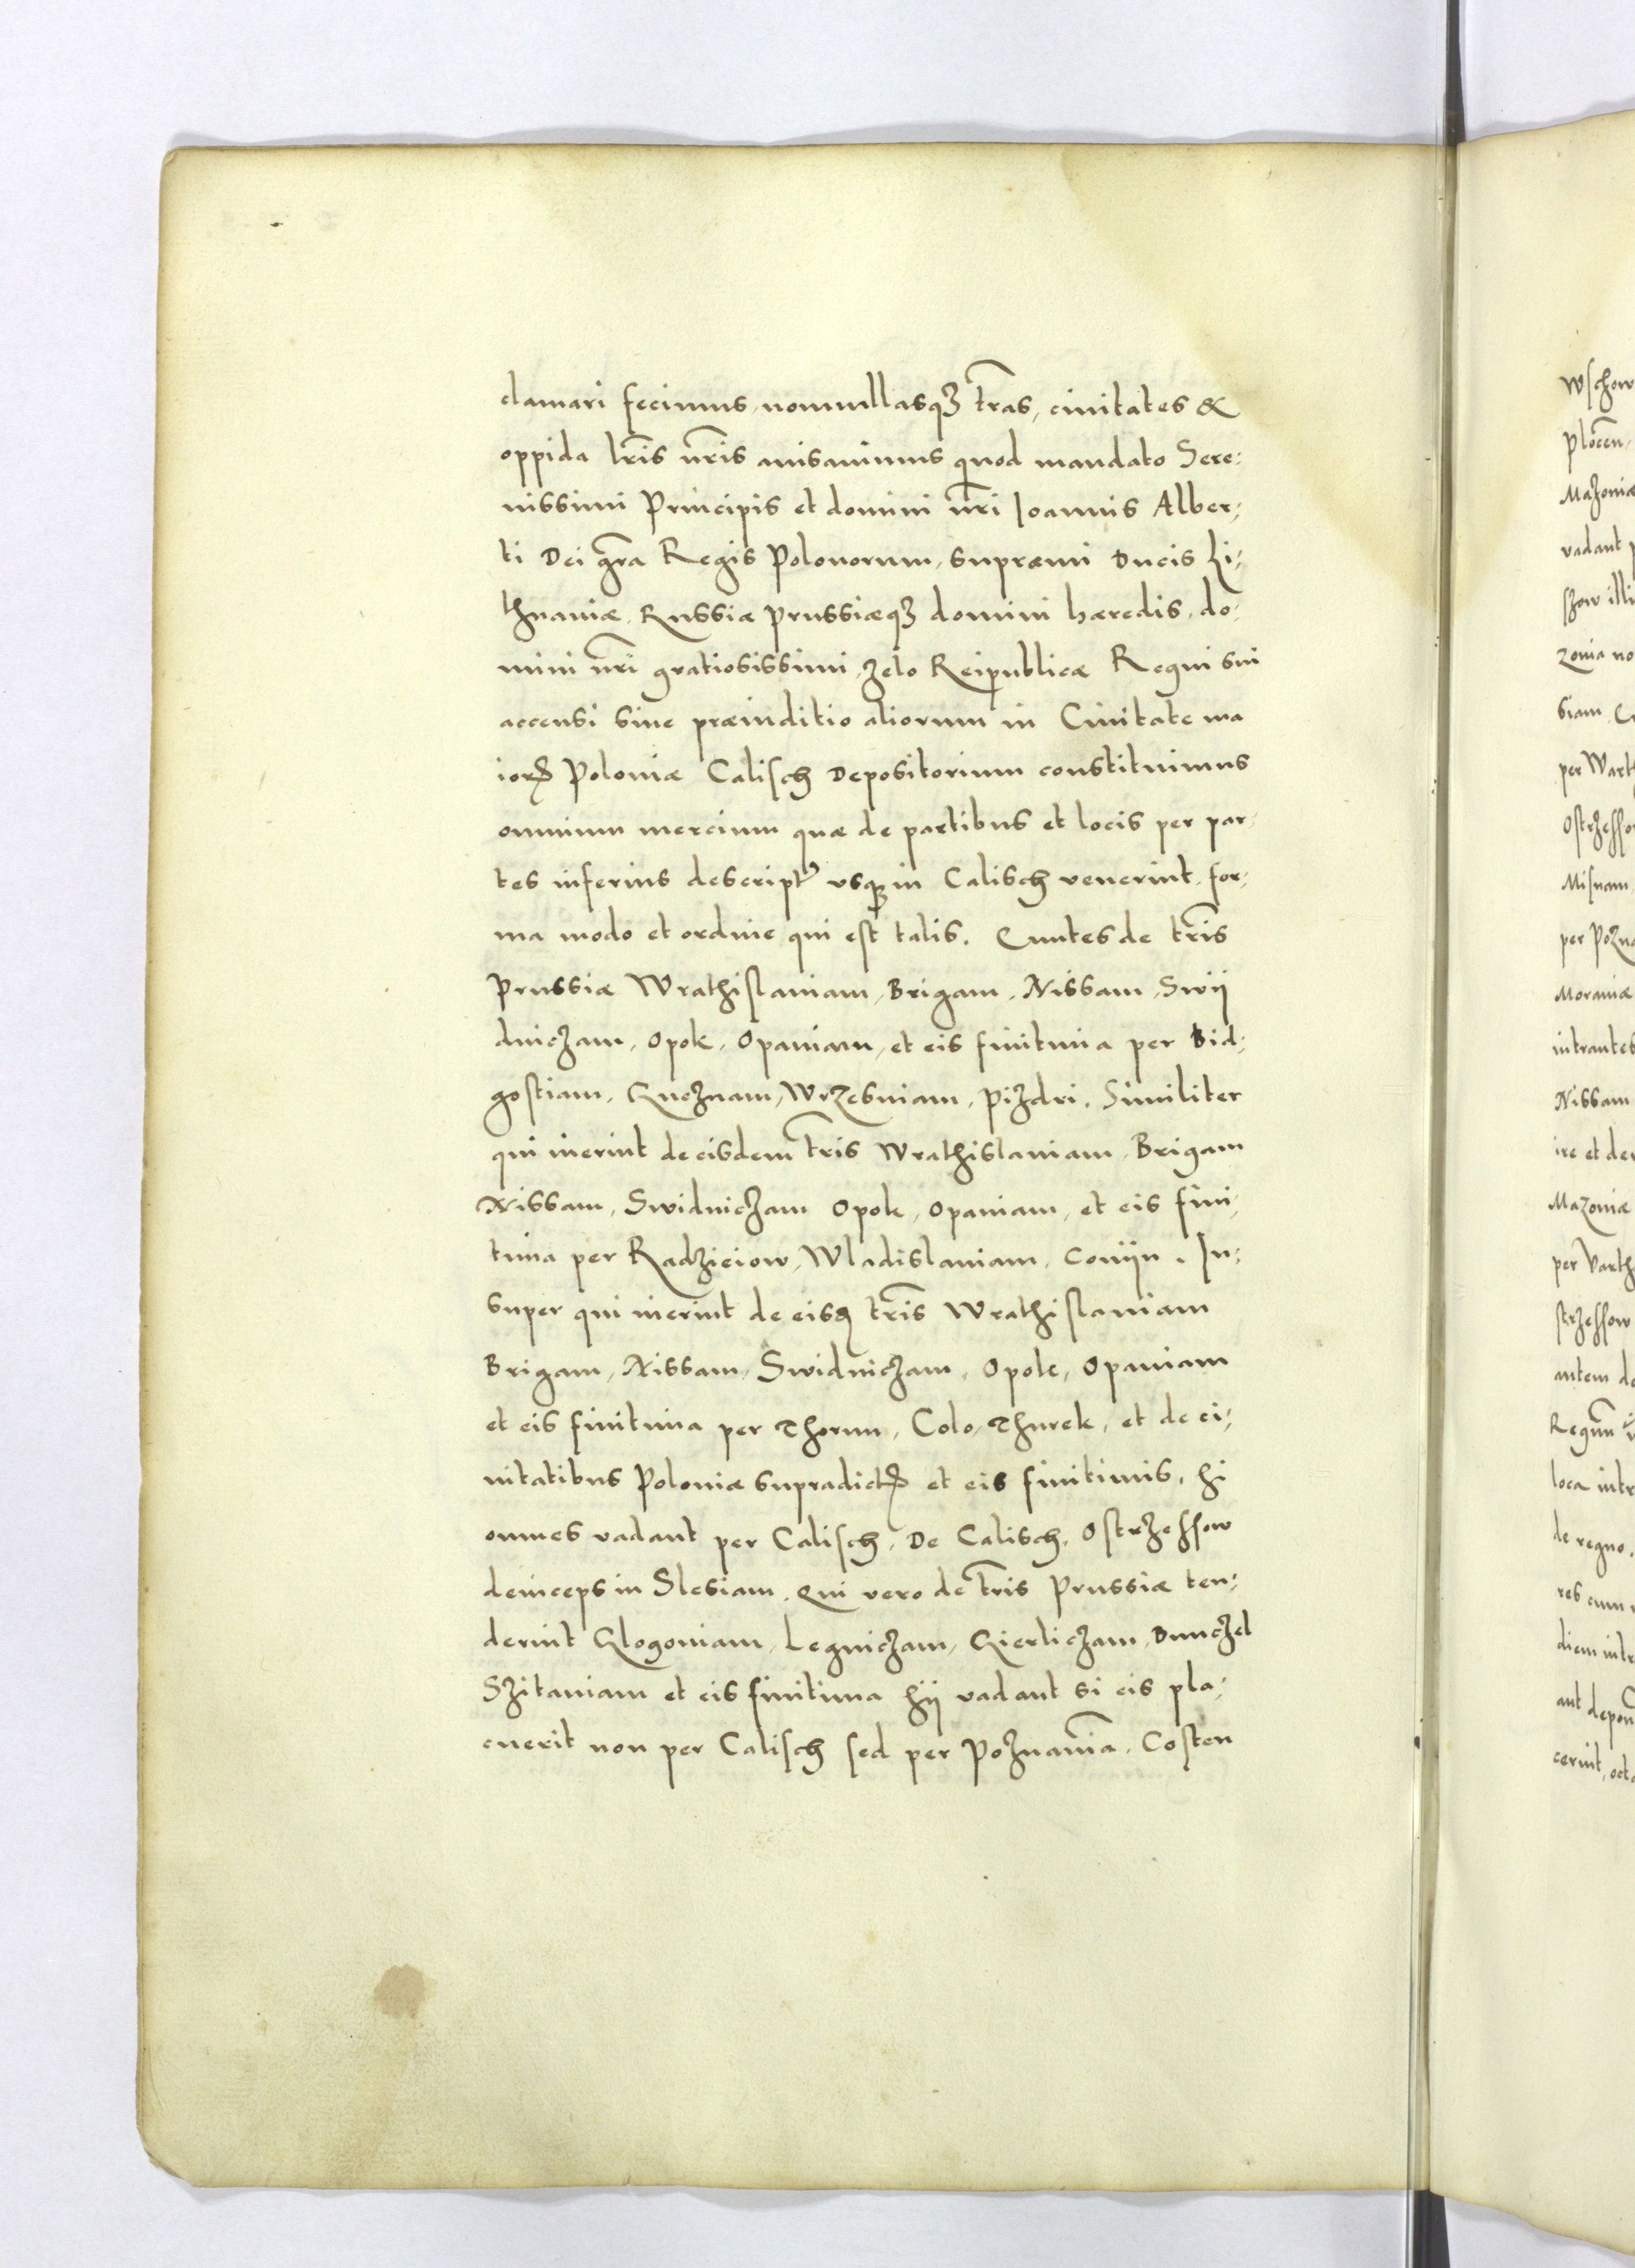 clamari fecimus, nonnullasqꝫ tr̃as, ciuitates &
oppida lr̃is nr̃is auisauimus quod mandato Sere:
nissimi Principis et domini nr̃i Ioannis Alber:
ti Dei gr̃a Regis Polonorum, supraemi Ducis Li:
thuaniæ, Russiæ Prussiæqꝫ domini hæredis, do:
mini nr̃i gratiosissimi, zelo Reipublicæ Regni sui
accensi sine præiuditio aliorum in Ciuitate ma
ioris Poloniæ Calisch Depositorium constituimus
omnium mercium quæ de partibus et locis per par:
tes inferius descriptꝭ vsqꝫ in Calisch venerint, for:
ma modo et ordine qui est talis. Euntes de tr̃is
Prussiæ Wrathislauiam, Brigam, Nissam, Swij
dniczam, Opok, Opauiam, et eis finitima per Bid:
gostiam, Gneznam, Wrzesniam, Pizdri. Similiter
qui iuerint de eisdem tr̃is Wrathislauiam, Brigam
Nissam, Swidniczam Opole, Opauiam, et eis fini:
tima per Radzieiow, Wladislauiam, Conijn. In:
super qui iuerint de eisd tr̃is Wrathislauiam
Brigam, Nissam, Swidniczam, Opole, Opauiam
et eis finitima per Thorun, Colo, Thurek, et de ci:
uitatibus Poloniæ supradictis et eis finitimis, hi
omnes vadant per Calisch, De Calisch, Ostrzessow
deinceps in Slesiam. Qui vero de tr̃is Prussiæ ten:
derint Glogouiam, Legniczam, Gierliczam, Bunczel
Szitauiam et eis finitima hij vadant si eis pla:
cuerit non per Calisch sed per Poznaniã, Costen
Wschow
Plocen̄,
Mazoniæ
vadant
szow illi
zonia no
siam,
per Wart
Ostrzesso
Misnam
per Pozna
Morauiæ
intrantes
Nissam
ire et de
Mazoniæ
per Varth
strzessow
autem d
Regnũ
loca intr
de regno.
res cum
diem intr
aut depon
cerint, oct